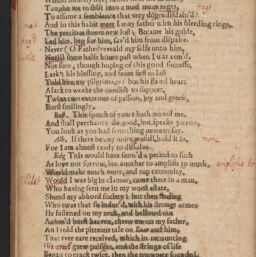 Taught me to shift into a mad mans rags,
To assume a semblance that very dogges disdain'd:
And in this habit meet I my father with his bleeding rings,
The precious stones new lost; Became his guide,
Led him, beg for him, sav'd him from dispaire.
Never (O Father) reveald my selfe unto him,
Untill some halfe houre past when I was arm'd,
Not sure, though hoping of this good successe,
I askt his blessing, and from first to last
Told him my pilgrimage: but his flawd heart
Alacke too weake the conflict to support,
Twixt two extremes of passion, joy and greefe,
Burst smilingly.
Bast. This speech of yours hath moved me,
And shall perchance do good, but speake you on,
You look as you had something more to say.
Alb. If there be any more, wofull, hold it in,
For I am almost ready to dissolve.
Edg. This would have seem'd a period to such
As love not sorrow, but another to amplifie to much,
Would make much more, and top extremity,
Would I was big in clamor, came there in a man,
Who having seen me in my worst estate,
Shund my abhord society: but then finding
Who twas that so indur'd, with his stronge armes
He fastened on my neck, and bellowd out
As hee'd burst heaven, threw me on my father,
And told the pitteous tale of Lear and him,
That ever eare received, which in recounting
His greef grew puissant, and the strings of life
Began to crack twice, then the trumpets sounded,